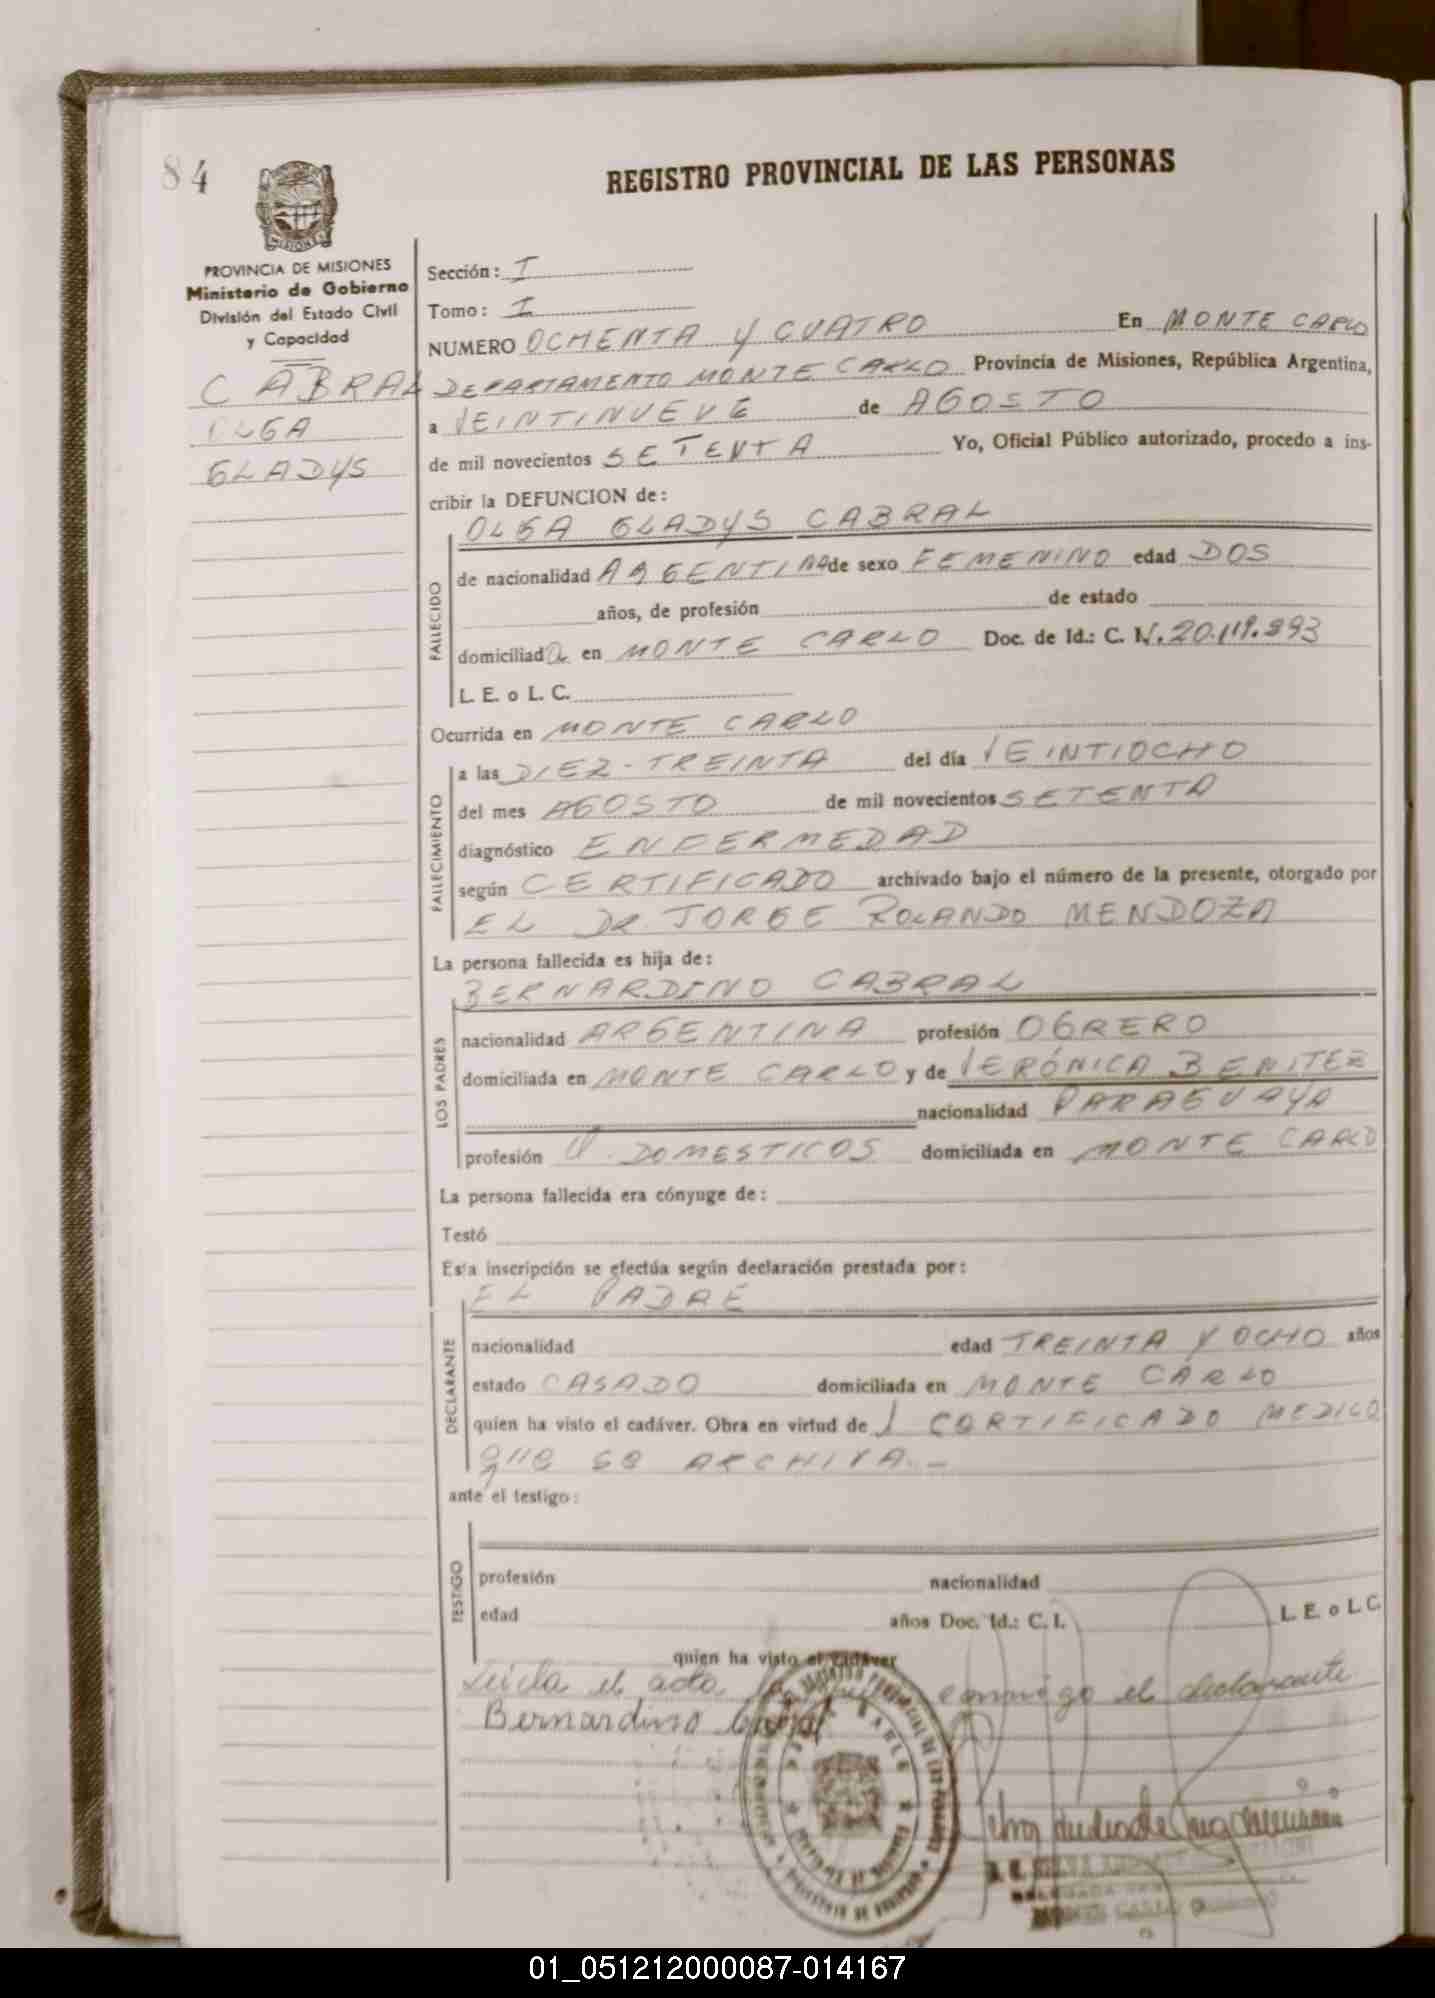 84
REGISTRO PROVINCIAL DE LAS PERSONAS
MISIONES
PROVINCIA DE MISIONES
Ministerio de Gobierno
División del Estado Civil
y Capacidad
CABRAL
OLGA
GLADYS
Sección: I
Tomo: I
NUMERO OCHENTA Y CUATRO En MONTE CARLO
DEPARTAMENTO MONTE CARLO Provincia de Misiones, República Argentina,
a VEINTINUEVE de AGOSTO
de mil novecientos SETENTA Yo, Oficial Público autorizado, procedo a ins-
cribir la DEFUNCION de:
OLGA GLADYS CABRAL
FALLECIDO
de nacionalidad ARGENTINA de sexo FEMENINO edad DOS
años, de profesión de estado
domiciliada en MONTE CARLO Doc. de Id.: C. I.
L. E. o L. C.
Ocurrida en MONTE CARLO
FALLECIMIENTO
a las DIEZ-TREINTA del día VEINTIOCHO
del mes AGOSTO de mil novecientos SETENTA
diagnóstico ENFERMEDAD
según CERTIFICADO archivado bajo el número de la presente, otorgado por
EL DR. JORGE ROLANDO MENDOZA
La persona fallecida es hija de:
BERNARDINO CABRAL
LOS PADRES
nacionalidad ARGENTINA profesión OBRERO
domiciliada en MONTE CARLO y de VERÓNICA BENITEZ
nacionalidad PARAGUAYA
profesión Q. DOMESTICOS domiciliada en MONTE CARLO
La persona fallecida era cónyuge de:
Testó
Esta inscripción se efectúa según declaración prestada por:
EL PADRE
DECLARANTE
nacionalidad edad TREINTA Y OCHO años
estado CASADO domiciliada en MONTE CARLO
quien ha visto el cadáver. Obra en virtud de 1 CERTIFICADO MEDICO
QUE SE ARCHIVA.-
ante el testigo:
TESTIGO
profesión nacionalidad
edad años Doc. Id.: C. I. L. E. o L. C.
quien ha visto el cadáver
Leida el acta conmigo el declarante
Bernardino Cabral
MONTE CARLO
01_051212000087-014167